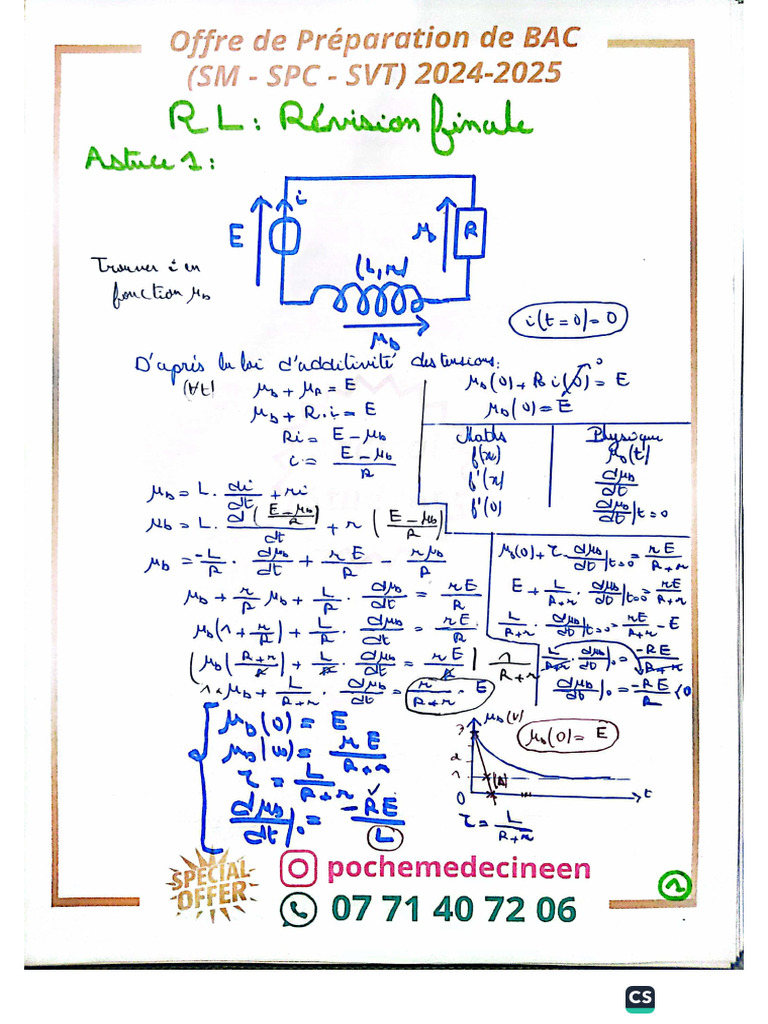 Offre de Préparation de BAC
(SM - SPC - SVT) 2024-2025
RL: Révision finale
Astuce 1:
i
E
u_b
R
(L,r)
u_b
Trouver i en
fonction u_b
i(t=0)=0
D'après la loi d'additivité des tensions:
(∀t) u_b + u_R = E
u_b + R.i = E
Ri = E - u_b
i = (E - u_b)/R
u_b(0) + R i(0) = E
0
u_b(0) = E
Maths Physique
f(x) u_b(t)
f'(x) du_b/dt
f'(0) du_b/dt|t=0
u_b = L. di/dt + ri
u_b = L. d((E - u_b)/R)/dt + r((E - u_b)/R)
u_b = -L/R . du_b/dt + rE/R - ru_b/R
u_b + r/R u_b + L/R . du_b/dt = rE/R
u_b(1 + r/R) + L/R . du_b/dt = rE/R
(u_b(R+r)/R) + L/R . du_b/dt = rE/R | 1/(R+r)
1×u_b + L/(R+r) . du_b/dt = r/(R+r) . E
u_b(0) + τ. du_b/dt|t=0 = rE/(R+r)
E + L/(R+r) . du_b/dt|t=0 = rE/(R+r)
L/(R+r) . du_b/dt|t=0 = rE/(R+r) - E
L/(R+r) . du_b/dt|0 = -RE/(R+r)
du_b/dt|0 = -RE/L < 0
u_b(0) = E
u_b(∞) = rE/(R+r)
τ = L/(R+r)
du_b/dt|0 = -RE/L
u_b(V)
u_b(0) = E
2
1
0
t
τ = L/(R+r)
SPECIAL
OFFER
pochemedecineen
07 71 40 72 06
1
CS